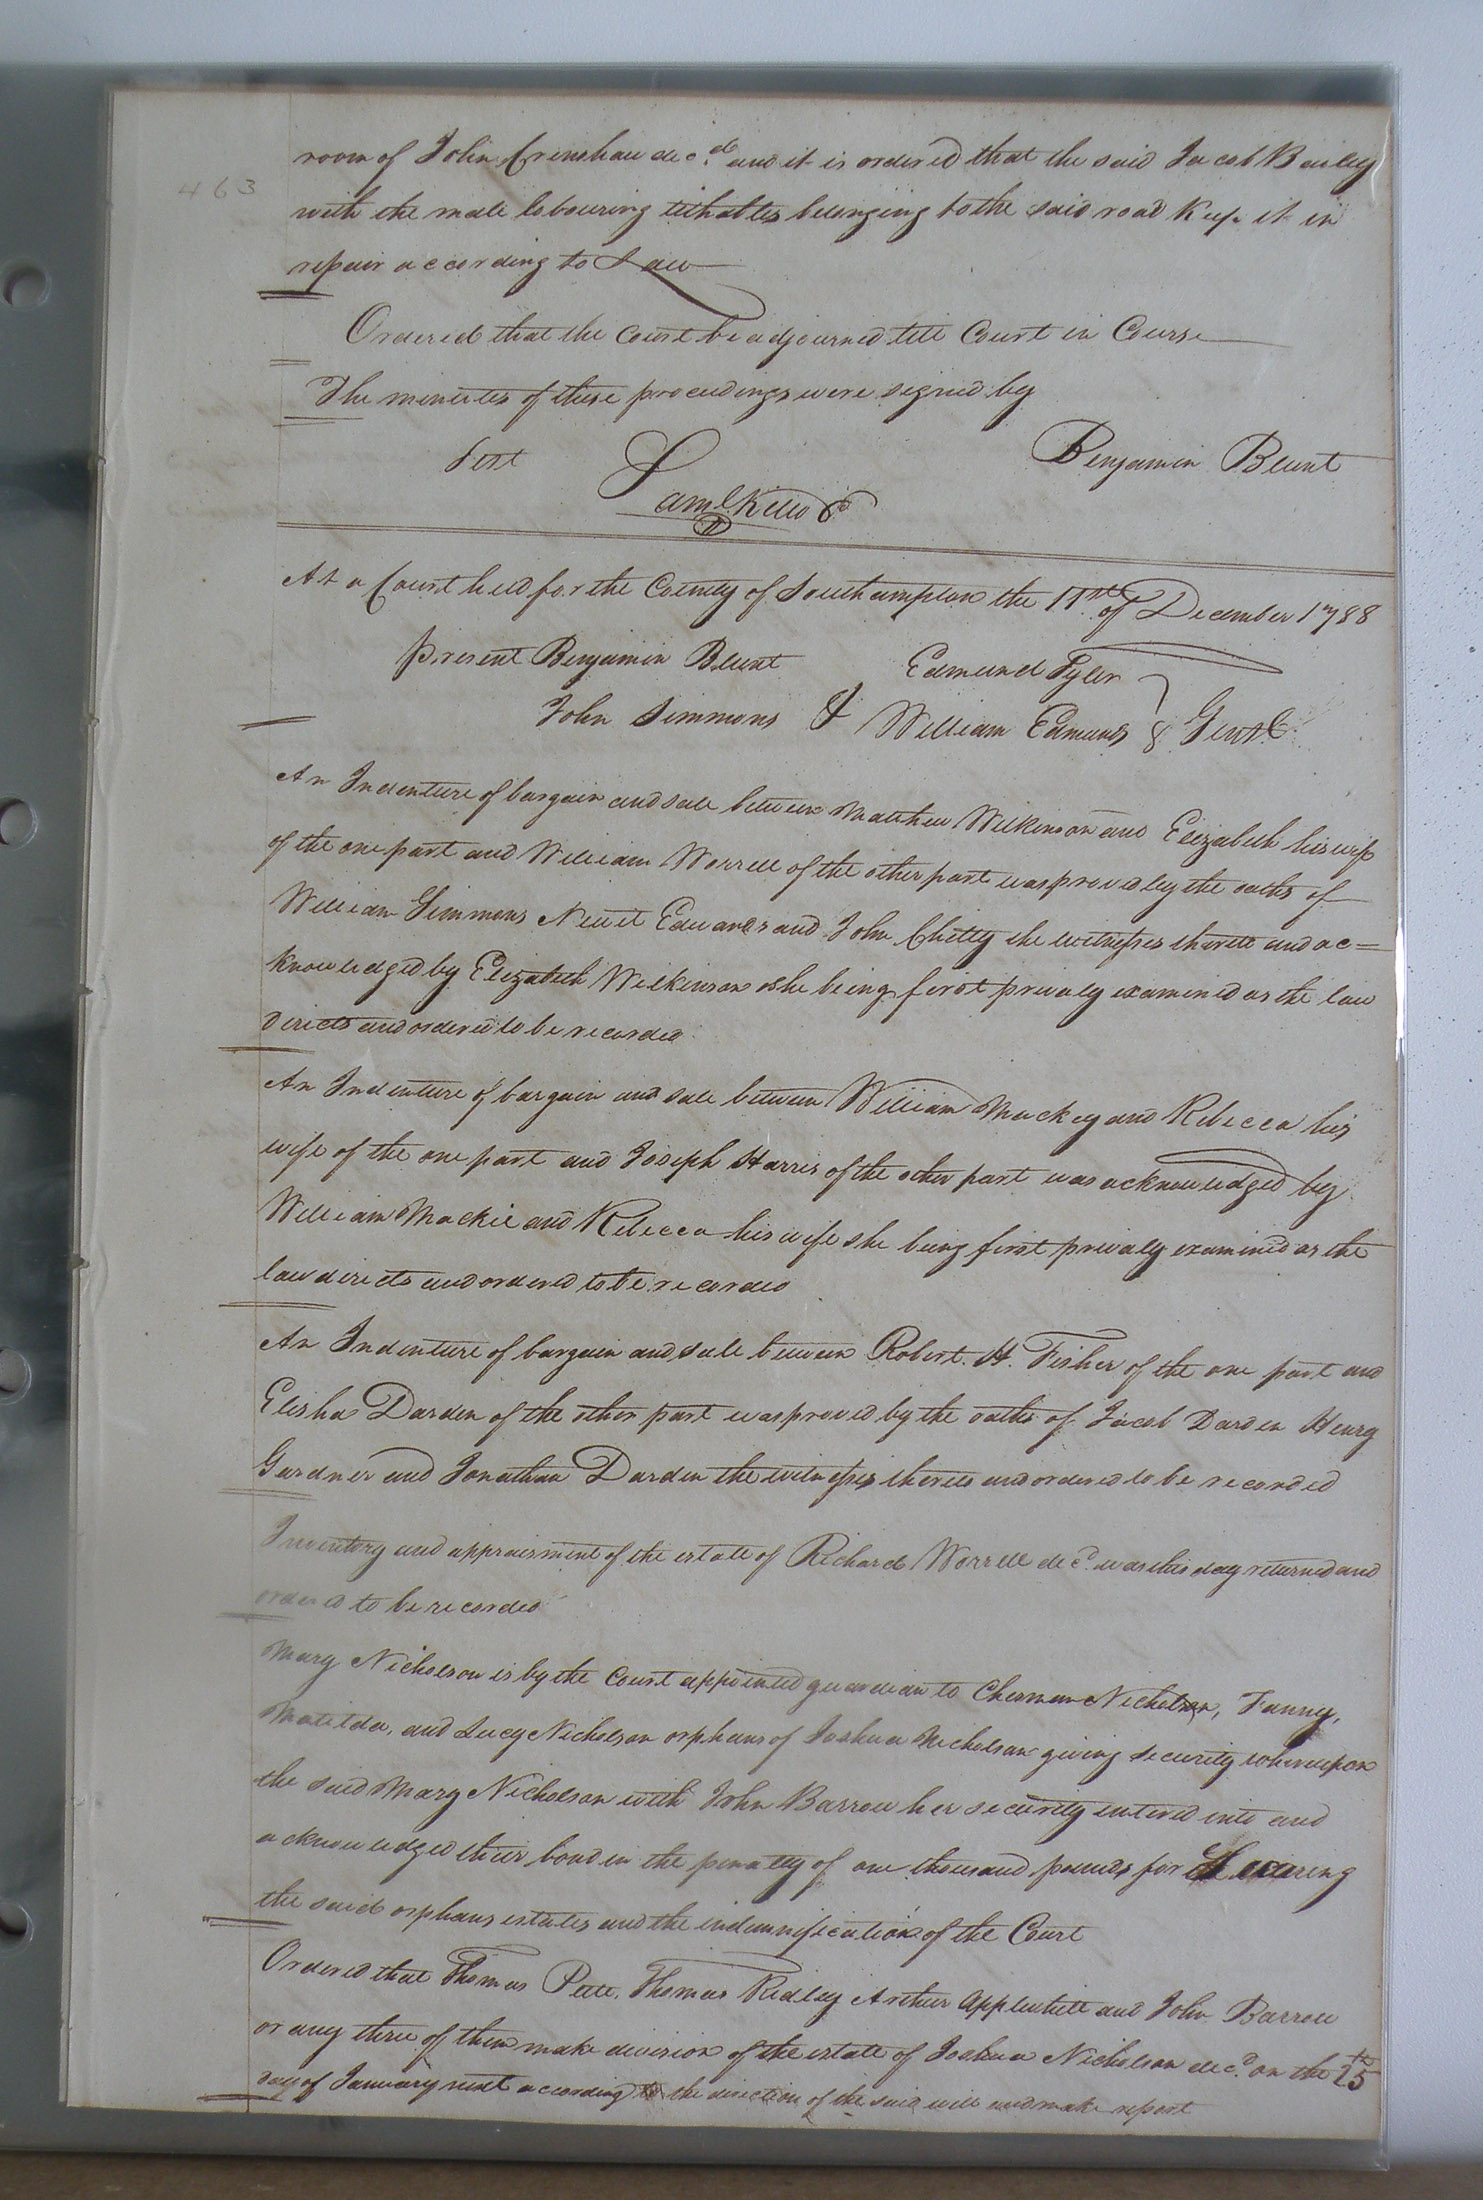 463
room of John Crenshaw dec.d and it is ordered that the said Jacob Bailey
with the male labouring tithables belonging to the said road Keep it in
repair according to Law
Ordered that the Court be adjourned till Court in Course
The minutes of these proceedings were signed by
Benjamin Blunt
Test
Saml Kello
At a Court held for the County of Southampton the 11th of December 1788
present Benjamin Blunt Edmund Tyler
John Simmons & William Edmunds Gentl.
An Indenture of bargain and sale between Matthew Wilkinson and Elizabeth his wife
of the one part and William Worrell of the other part was proved by the oaths of
William Simmons Newit Edwards and John Chitty the witnesses thereto and ac=
knowledged by Elizabeth Wilkinson she being first privaly examined as the law
directs and ordered to be recorded
An Indenture of bargain and sale between William Mackey and Rebecca his
wife of the one part and Joseph Harris of the other part was acknowledged by
William Mackie and Rebecca his wife she being first privaly examined as the
law directs and ordered to be recorded
An Indenture of bargain and sale between Robert. H. Fisher of the one part and
Elisha Darden of the other part was proved by the oaths of Jacob Darden Henry
Gardner and Jonathan Darden the witnesses thereto and ordered to be recorded
Inventory and appraisment of the estate of Richard Worrell dec.d was this day returned and
ordered to be recorded
Mary Nicholson is by the Court appointed guardian to Nicholson, Fanny,
Matilda, and Lucy Nicholson orphans of Joshua Nicholson giving security whereupon
the said Mary Nicholson with John Barrow her security entered into and
acknowledged their bond in the penalty of one thousand pounds for Securing
the said orphans estates and the indemnification of the Court
Ordered that Thomas Pete, Thomas Ridley Arthur Applewhite and John Barrow
or any three of them make division of the estate of Joshua Nicholson dec.d on the 25th
day of January next according to the direction of the said will and make report